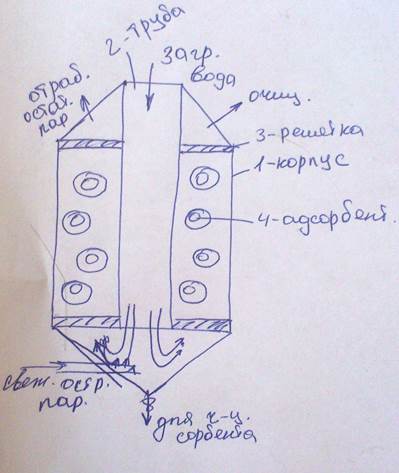 2-труба
загр.
вода
отраб.
остр.
пар
очищ.
3-решётка
1-корпус
4-адсорбент.
свеж. остр.
пар.
для ч-ц.
сорбента